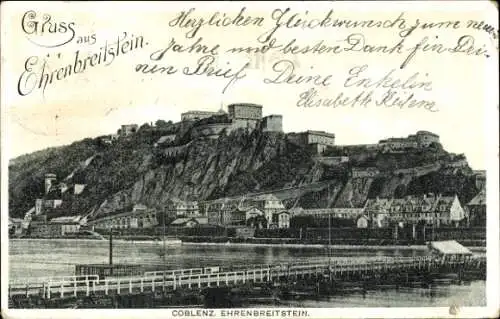 Gruss
aus
Ehrenbreitstein.
Herzlichen Glückwunsch zum neuen
Jahre und besten Dank für Dei-
nen Brief Deine Enkelin
Elisabeth
COBLENZ. EHRENBREITSTEIN.